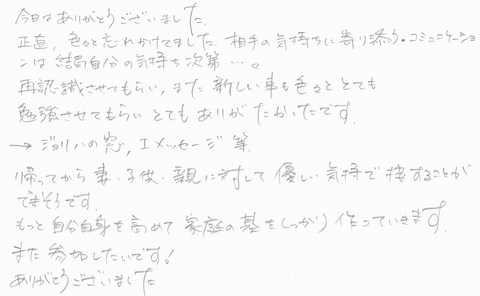 今日はありがとうございました。
正直、色々と忘れかけてました。相手の気持ちに寄り添う。コミュニケーショ
ンは結局自分の気持ち次第…。
再認識させてもらい、また新しい事も色々ととても
勉強させてもらいとてもありがたかったです。
→ジョハリの窓、Iメッセージ等
帰ってから妻・子供・親に対して優しい気持で接することが
できそうです。
もっと自分自身を高めて家庭の基をしっかり作っていきます。
また参加したいです!
ありがとうございました